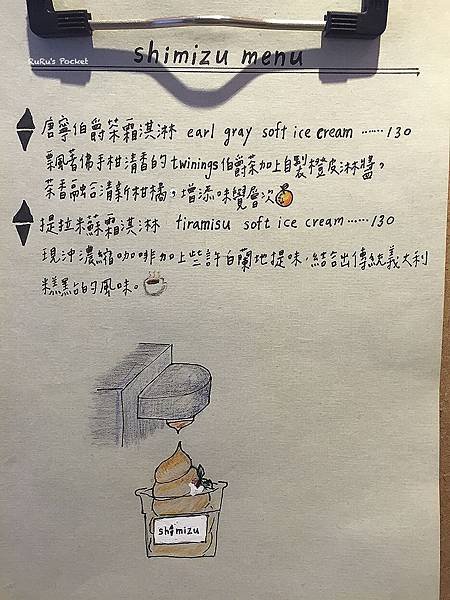 RuRu's Pocket
shimizu menu
唐寧伯爵茶霜淇淋 earl gray soft ice cream ……130
飄著佛手柑清香的twinings伯爵茶加上自製橙皮淋醬，
茶香融合清新柑橘，增添味覺層次
提拉米蘇霜淇淋 tiramisu soft ice cream……130
現沖濃縮咖啡加上些許白蘭地提味，結合出傳統義大利
糕點的風味。
shimizu